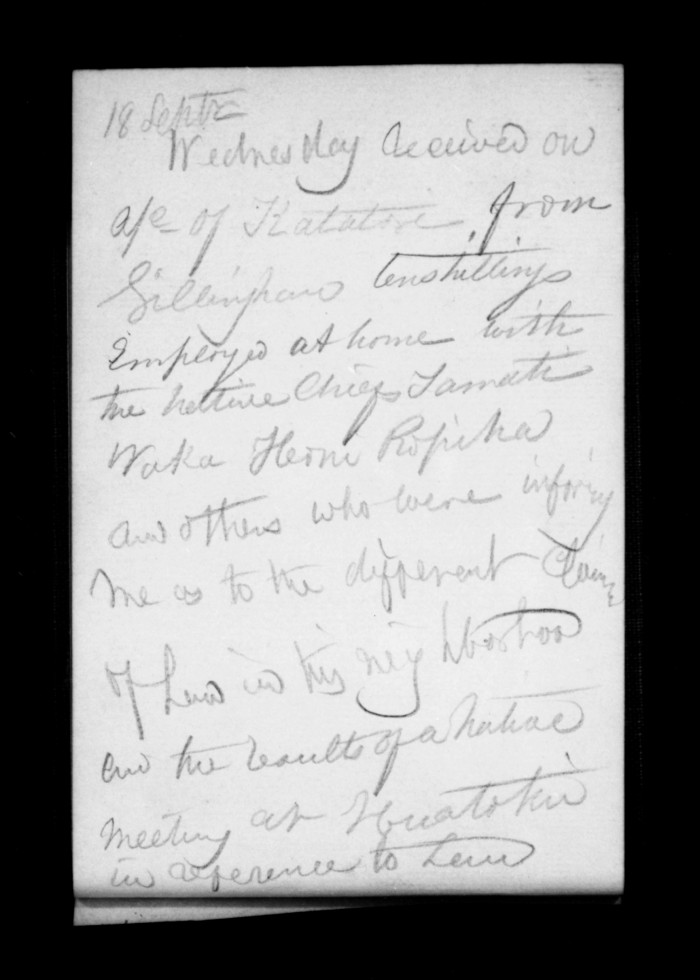 18 Septr
Wednesday Received on
a/c of Katatore from
Gillingham ten shillings
Employed at home with
the native Chiefs Tamati
Waka Hone Ropiha
and others who were informg
me as to the different Claims
of Land in this neighborhood
and the results of a native
meeting at Huatoki
in reference to Land